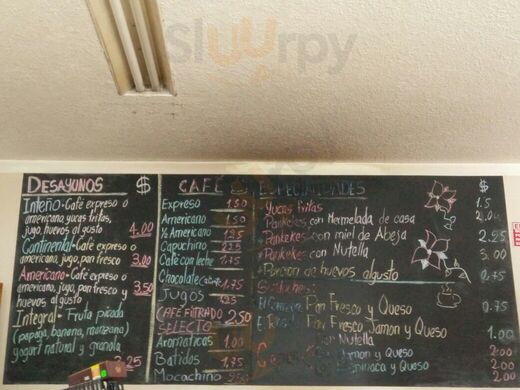 Sluurpy
DESAYUNOS $
Inteño - Café expreso o
americano, yucas fritas,
jugo, huevos al gusto 4.00
Continental - Café expreso o
americano, jugo, pan fresco 3.00
Americano - Café expreso o
americano, jugo, pan fresco y 3.50
huevos al gusto
Integral - Fruta picada
(papaya, banana, manzana)
yogurt natural y granola
3.25
CAFÉ
Expreso 1.50
Americano 1.50
½ Americano 1.25
Capuchino 2.25
Café con leche 1.75
Chocolate 1.75
Jugos
CAFÉ FILTRADO 2.50
SELECTO
Aromáticas 1.00
Batidos 1.75
Mocachino
ESPECIALIDADES $
Yucas fritas 1.5
Pankekes con Mermelada de casa
Pankekes con miel de Abeja 2.25
Pankekes con Nutella 3.00
Porción de huevos al gusto 0.75
Sanduches:
Pan Fresco y Queso 0.75
Pan Fresco Jamon y Queso 1.00
con Nutella 1.00
Jamon y Queso 2.00
Espinaca y Queso 2.00